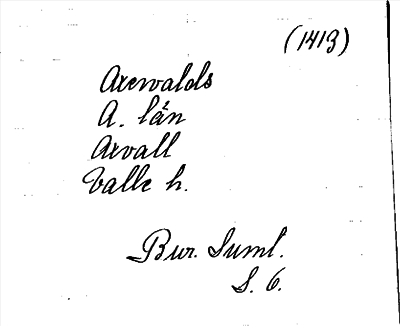 (1413)
Axewalds
A. län
Axvall
Valle h.
Bur. Suml.
S. 6.